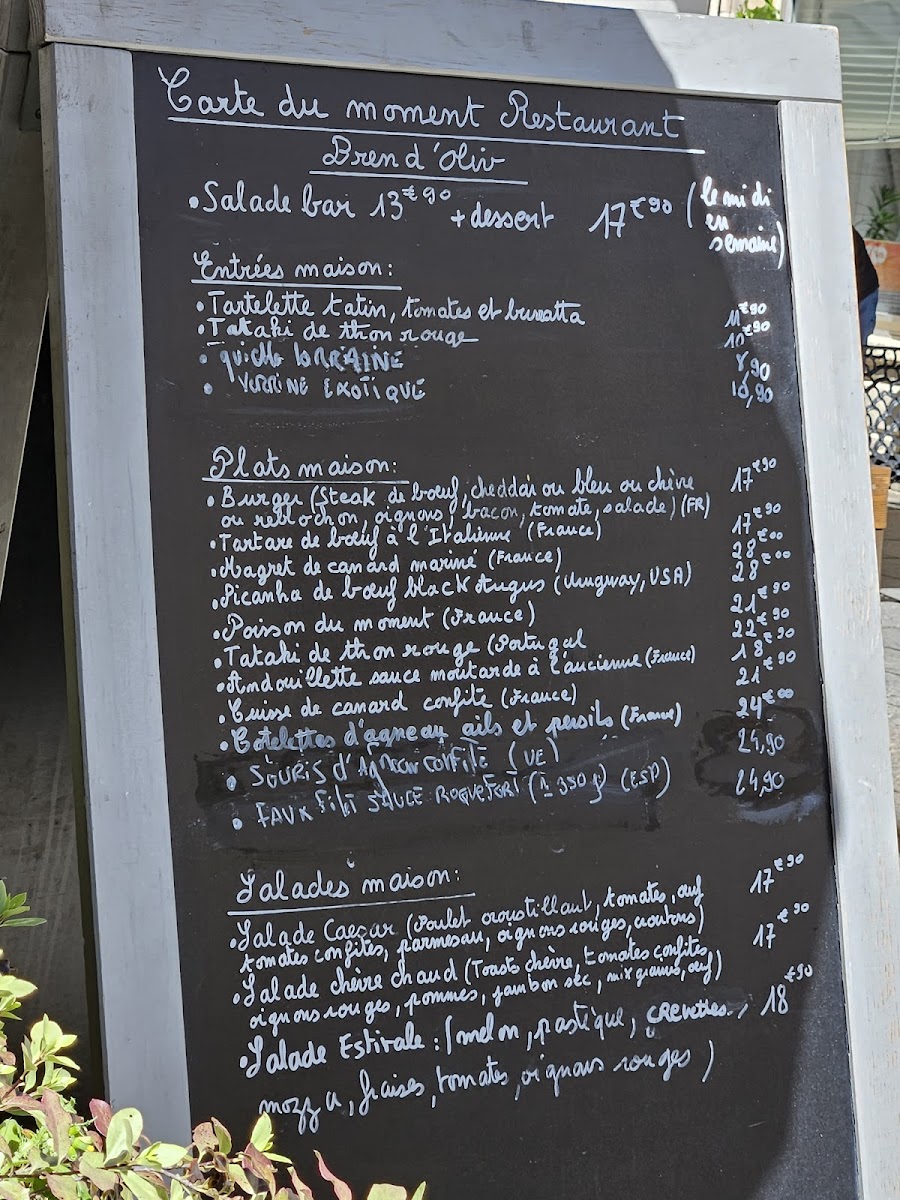 Carte du moment Restaurant
Bren d'Oliv
• Salade bar 13€90 + dessert 17€90 (le midi en semaine)
Entrées maison:
• Tartelette tatin, tomates et burratta 11€90
• Tataki de thon rouge 10€90
• quiche LORRAINE 8,90
• VERRINE EXOTIQUE 10,90
Plats maison:
• Burger (Steak de bœuf, cheddar ou bleu ou chèvre 17€90
ou reblochon, oignons, bacon, tomate, salade) (FR)
• Tartare de bœuf à l'Italienne (France) 17€90
• Magret de canard mariné (France) 28€00
• Picanha de bœuf black Angus (Uruguay, USA) 28€00
• Poisson du moment (France) 21€90
• Tataki de thon rouge (Portugal 22€90
• Andouillette sauce moutarde à l'ancienne (France) 18€90
• Cuisse de canard confite (France) 21€90
• Cotelettes d'agneau ails et persils (France) 24€00
• SOURIS d'AGNEAU CONFITE (UE) 24,90
• FAUX FILET SAUCE ROQUEFORT (± 350g) (ESP) 24,90
Salades maison:
• Salade Caesar (Poulet croustillant, tomates, œuf 17€90
tomates confites, parmesan, oignons rouges, croutons)
• Salade chèvre chaud (Toasts chèvre, tomates confites, 17€90
oignons rouges, pommes, jambon sec, mix grains, œuf)
• Salade Estivale : (melon, pastèque, CREVETTES, 18€90
mozza, fraises, tomates, oignons rouges)